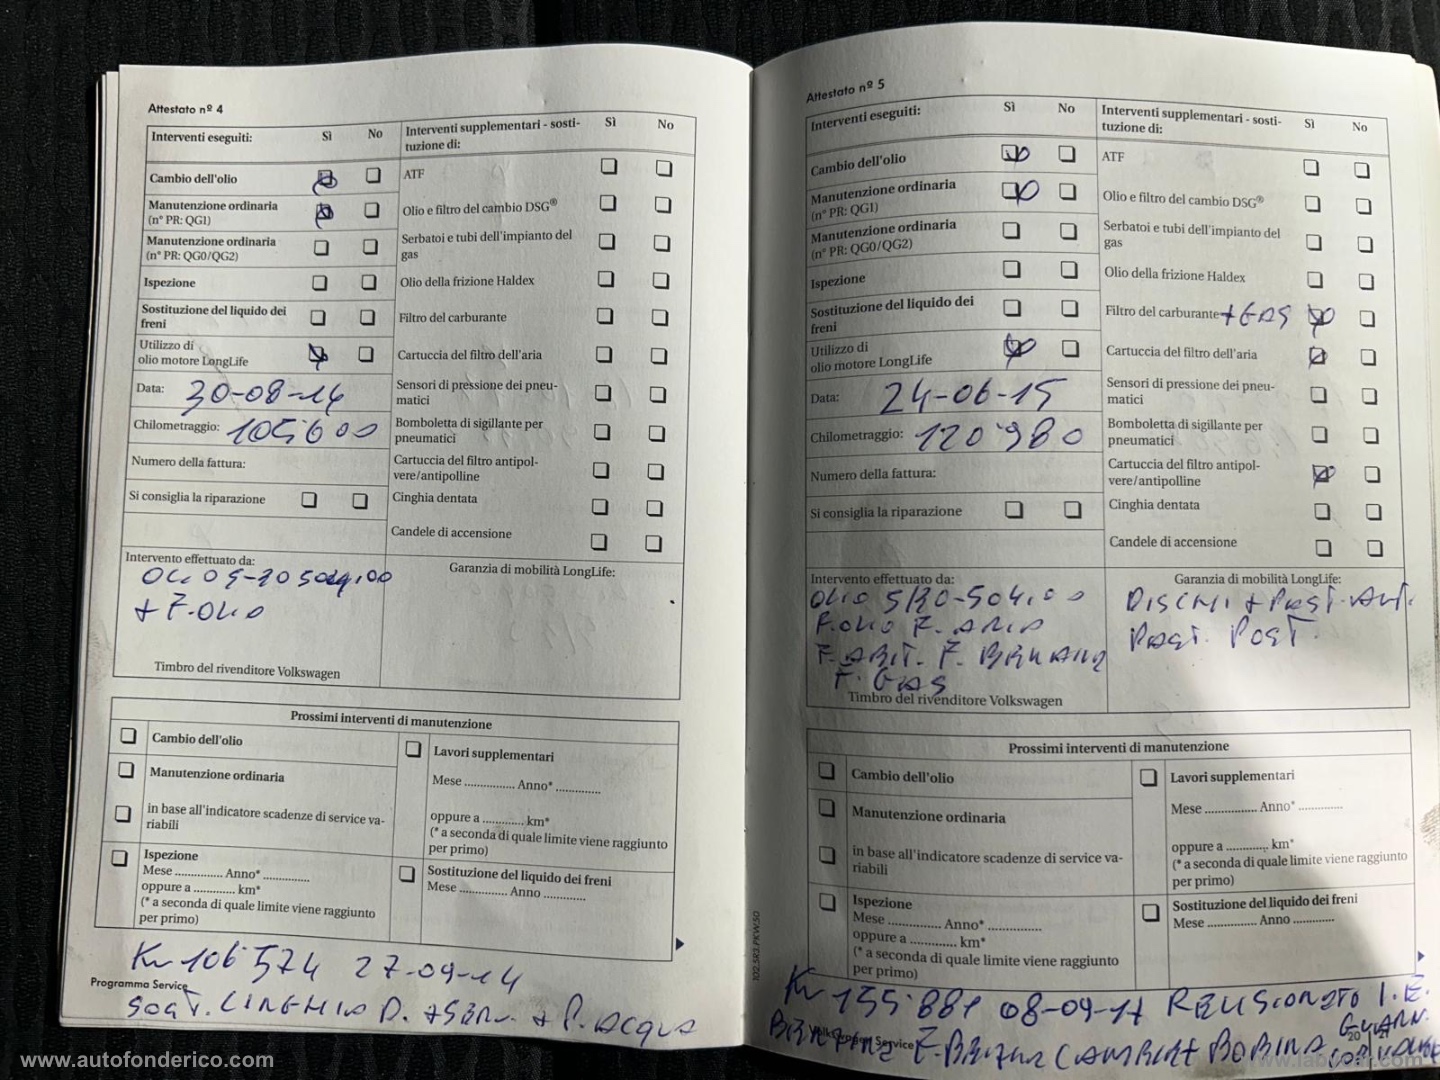 Attestato nº 4
Interventi eseguiti: Sì No
Cambio dell'olio
Manutenzione ordinaria
(n° PR: QG1)
Manutenzione ordinaria
(n° PR: QG0/QG2)
Ispezione
Sostituzione del liquido dei
freni
Utilizzo di
olio motore LongLife
Data: 30-08-14
Chilometraggio: 105600
Numero della fattura:
Si consiglia la riparazione
Interventi supplementari - sosti-
tuzione di: Sì No
ATF
Olio e filtro del cambio DSG®
Serbatoi e tubi dell'impianto del
gas
Olio della frizione Haldex
Filtro del carburante
Cartuccia del filtro dell'aria
Sensori di pressione dei pneu-
matici
Bomboletta di sigillante per
pneumatici
Cartuccia del filtro antipol-
vere/antipolline
Cinghia dentata
Candele di accensione
Intervento effettuato da:
+ F. OLIO
Timbro del rivenditore Volkswagen
Garanzia di mobilità LongLife:
Prossimi interventi di manutenzione
Cambio dell'olio
Manutenzione ordinaria
in base all'indicatore scadenze di service va-
riabili
Ispezione
Mese ............... Anno* ..............
oppure a ............. km*
(* a seconda di quale limite viene raggiunto
per primo)
Lavori supplementari
Mese ............... Anno* ..............
oppure a ............. km*
(* a seconda di quale limite viene raggiunto
per primo)
Sostituzione del liquido dei freni
Mese ............... Anno ..............
Km 106 574 27-09-14
Programma Service
SOST. CINGHIA D. + SERV. + P. ACQUA
Attestato nº 5
Interventi eseguiti: Sì No
Cambio dell'olio
Manutenzione ordinaria
(n° PR: QG1)
Manutenzione ordinaria
(n° PR: QG0/QG2)
Ispezione
Sostituzione del liquido dei
freni
Utilizzo di
olio motore LongLife
Data: 24-06-15
Chilometraggio: 120'980
Numero della fattura:
Si consiglia la riparazione
Interventi supplementari - sosti-
tuzione di: Sì No
ATF
Olio e filtro del cambio DSG®
Serbatoi e tubi dell'impianto del
gas
Olio della frizione Haldex
Filtro del carburante + GAS
Cartuccia del filtro dell'aria
Sensori di pressione dei pneu-
matici
Bomboletta di sigillante per
pneumatici
Cartuccia del filtro antipol-
vere/antipolline
Cinghia dentata
Candele di accensione
Intervento effettuato da:
OLIO 5/30-504.00
F. OLIO F. ARIA
F. ABIT. F. BENZINA
F. GAS
Timbro del rivenditore Volkswagen
Garanzia di mobilità LongLife:
DISCHI + PAST. ANT.
PAST. POST.
Prossimi interventi di manutenzione
Cambio dell'olio
Manutenzione ordinaria
in base all'indicatore scadenze di service va-
riabili
Ispezione
Mese ............... Anno* ..............
oppure a ............. km*
(* a seconda di quale limite viene raggiunto
per primo)
Lavori supplementari
Mese ............... Anno* ..............
oppure a ............. km*
(* a seconda di quale limite viene raggiunto
per primo)
Sostituzione del liquido dei freni
Mese ............... Anno ..............
102.5R3.PKW.50
Km 155'881 08-09-17 REVISIONATO I.E.
BOBINA GUARN.
www.autofonderico.com